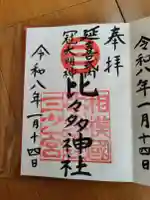 奉拝
延喜式内
冠大明神
比々多神社
令和八年一月十四日
相模國
三之宮
令和八年一月十四日